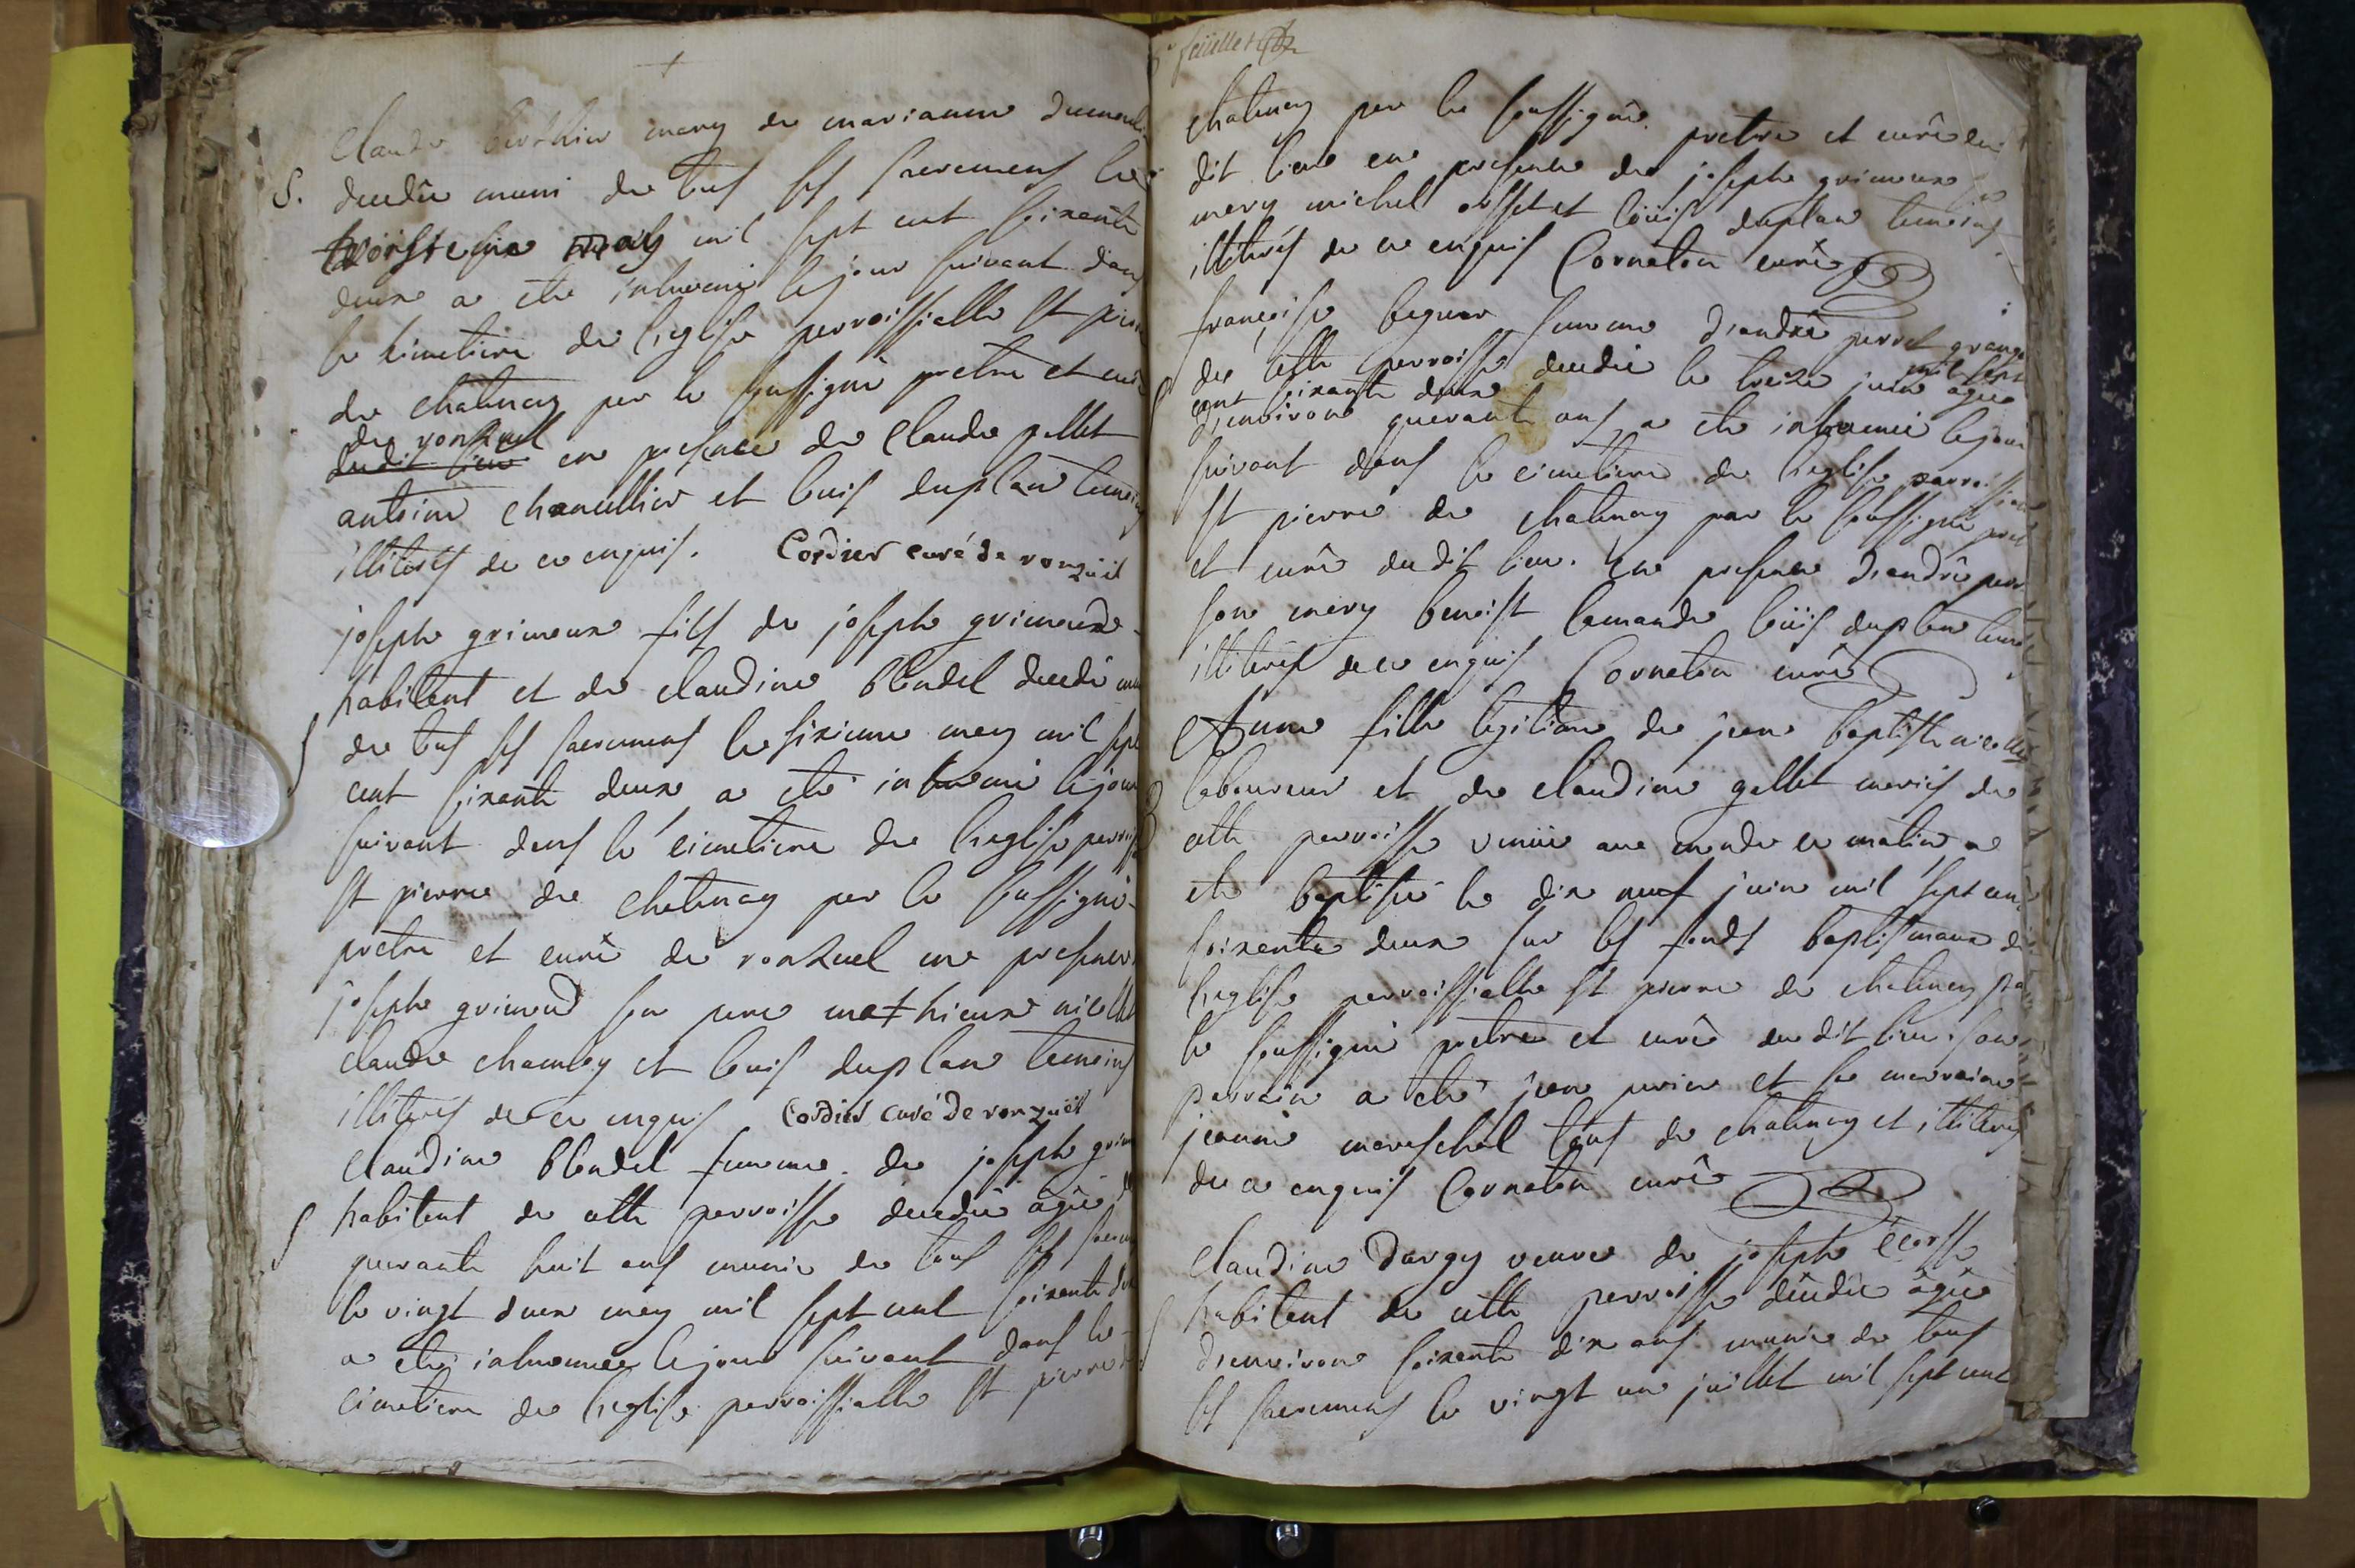 Claude berthier mary de marianne
S. decedé muni de tous ses sacremens le
troisieme may mil sept cent soixante
deux a eté inhumé le jour suivant dans
le cimetiere de l'eglise parroissialle st pierre
de chatenay par le soussigné pretre et curé
de ronzuel
dudit lieu en presence de Claude pallet
antoine chancellier et louis duplan temoins
illiterés de ce enquis. Cordier curé de ronzuel
joseph grimeux fils de joseph grimeux
habitant et de claudine blondel decedé muni
S de tous ses sacremens le sixieme may mil sept
cent soixante deux a eté inhumé le jour
suivant dans le cimetiere de l'eglise
st pierre de chatenay par le soussigné
pretre et curé de ronzuel en presence
joseph grimeud son pere mathieux
claude chambey et louis duplan temoins
illiterés de ce enquis Cordier curé de ronzuel
Claudine blondel femme de joseph
S habitant de cette parroisse decedée agée de
quarante huit ans munie de tous ses
le vingt deux may mil sept cent soixante deux
a eté inhumée le jour suivant dans le
cimetiere de l'eglise parroissialle st pierre
feüillet
chatenay par le soussigné pretre et curé du
dit lieu en presence de joseph grimeux son
mary michel et loüis duplan temoins
illiterés de ce enquis Cornaton curé
françoise femme d'andré perret granger
de cette parroisse decedée le treize juin mil sept
cent soixante deux agée
d'environ quarante ans, a eté inhumée le jour
suivant dans le cimetiere de l'eglise
st pierre de chatenay par le soussigné
et curé du dit lieu. en presence d'andré
son mary benoist lamande loüis duplan
illiterés de ce enquis Cornaton curé
Anne fille legitime de jean baptiste
B laboureur et de claudine gallet mariés de
cette parroisse venüe au monde ce matin a
eté baptisée le dix neuf juin mil sept cent
soixante deux sur les fonds baptismaux de
l'eglise parroissialle st pierre de chatenay par
le soussigné pretre et curé du dit lieu. son
parrain a eté jean et sa marraine
jeanne mareschal tous de chatenay et illiterés
de ce enquis Cornaton curé
claudine dargy veuve de joseph
S habitant de cette parroisse decedée agée
d'environ soixante dix ans munie de tous
ses sacremens le vingt un juillet mil sept cent